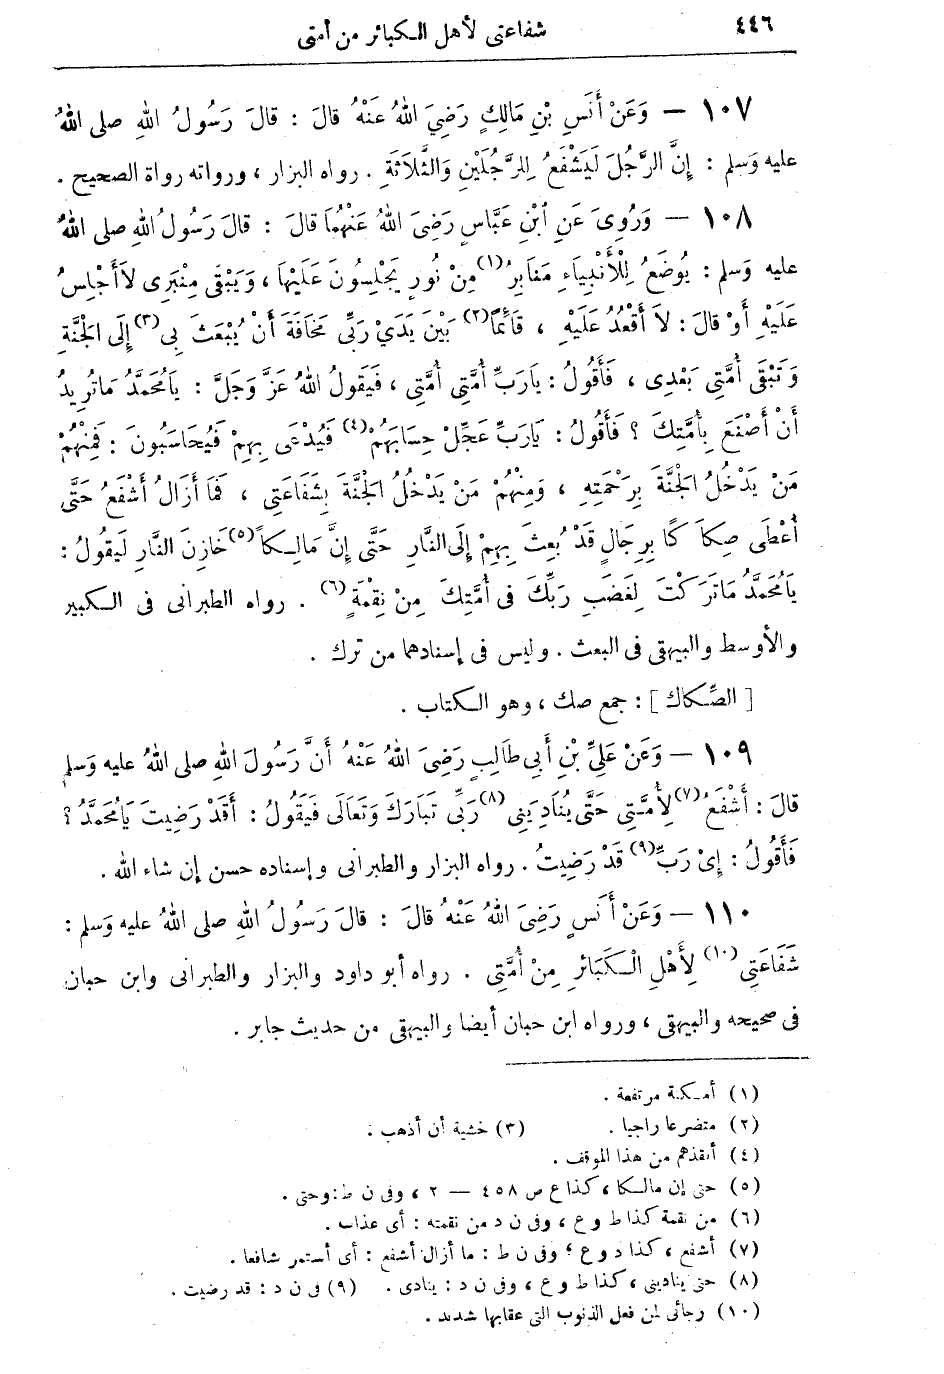 ٤٤٦
شفاعتى لأهل الكبائر من أمتى
١٠٧ — وَعَنْ أَنَسِ بْنِ مَالِكٍ رَضِيَ اللهُ عَنْهُ قالَ : قالَ رَسُولُ اللهِ صلى اللهُ
عليه وَسلم : إِنَّ الرَّجُلَ لَيَشْفَعُ لِلرَّجُلَيْنِ وَالثَّلَاثَةِ . رواه البزار ، ورواته رواة الصحيح .
١٠٨ — وَرُوِىَ عَنِ ابْنِ عَبَّاسٍ رَضِىَ اللهُ عَنْهُمَا قالَ : قالَ رَسُولُ اللهِ صلى اللهُ
عليه وَسلم : يُوضَعُ لِلْأَنْبِيَاءِ مَنَابِرُ(١) مِنْ نُورٍ يَجْلِسُونَ عَلَيْهَا ، وَيَبْقَى مِنْبَرِى لاَ أَجْلِسُ
عَلَيْهِ أَوْ قالَ : لاَ أَقْعُدُ عَلَيْهِ ، قَائِمًا(٢) بَيْنَ يَدَيْ رَبِّى مَخَافَةَ أَنْ يُبْعَثَ بِى(٣) إِلَى الجَنَّةِ
وَتَبْقَى أُمَّتِى بَعْدِى ، فَأَقُولُ : يَارَبِّ أُمَّتِى أُمَّتِى ، فَيَقُولُ اللهُ عَزَّ وَجَلَّ : يَامُحَمَّدُ مَاتُرِيدُ
أَنْ أَصْنَعَ بِأُمَّتِكَ ؟ فَأَقُولُ : يَارَبِّ عَجِّلْ حِسَابَهُمْ(٤) فَيُدْعَى بِهِمْ فَيُحَاسَبُونَ : فَمِنْهُمْ
مَنْ يَدْخُلُ الجَنَّةَ بِرَحْمَتِهِ ، وَمِنْهُمْ مَنْ يَدْخُلُ الجَنَّةَ بِشَفَاعَتِى ، فَمَا أَزَالُ أَشْفَعُ حَتَّى
أُعْطَى صِكاَ كًا بِرِجَالٍ قَدْ بُعِثَ بِهِمْ إِلَى النَّارِ حَتَّى إِنَّ مَالِكاً(٥) خَازِنَ النَّارِ لَيَقُولُ :
يَامُحَمَّدُ مَاتَرَكْتَ لِغَضَبِ رَبِّكَ فى أُمَّتِكَ مِنْ نِقْمَةٍ(٦) . رواه الطبرانى فى الكبير
والأوسط والبيهقى فى البعث . وليس فى إسنادهما من ترك .
[ الصِّكاك ] : جمع صك ، وهو الكتاب .
١٠٩ — وَعَنْ عَلِىِّ بْنِ أَبِى طَالِبٍ رَضِىَ اللهُ عَنْهُ أَنَّ رَسُولَ اللهِ صلى اللهُ عليه وَسلم
قالَ : أَشْفَعُ(٧) لِأُمَّتِى حَتَّى يُنَادِيَنِى(٨) رَبِّى تَبَارَكَ وَتَعَالَى فَيَقُولُ : أَقَدْ رَضِيتَ يَامُحَمَّدُ ؟
فَأَقُولُ : إِىْ رَبِّ(٩) قَدْ رَضِيتُ . رواه البزار والطبرانى وإسناده حسن إن شاء الله .
١١٠ — وَعَنْ أَنَسٍ رَضِىَ اللهُ عَنْهُ قالَ : قالَ رَسُولُ اللهِ صلى اللهُ عليه وَسلم :
شَفَاعَتِى(١٠) لِأَهْلِ الْكَبَائِرِ مِنْ أُمَّتِى . رواه أبو داود والبزار والطبرانى وابن حبان
فى صحيحه والبيهقى ، ورواه ابن حبان أيضا والبيهقى من حديث جابر .
(١) أمكنة مرتفعة .
(٢) متضرعا راجيا . (٣) خشية أن أذهب .
(٤) أنقذهم من هذا الموقف .
(٥) حتى إن مالكا ، كذا ع ص ٤٥٨ — ٢ ، وفى ن ط : وحتى .
(٦) من نقمة كذا ط و ع ، وفى ن د من نقمته : أى عذاب .
(٧) أشفع ، كذا د و ع ؛ وفى ن ط : ما أزال أشفع : أى أستمر شافعا .
(٨) حتى ينادينى ، كذا ط و ع ، وفى ن د : ينادى . (٩) فى ن د : قد رضيت .
(١٠) رجائى لمن فعل الذنوب التى عقابها شديد .